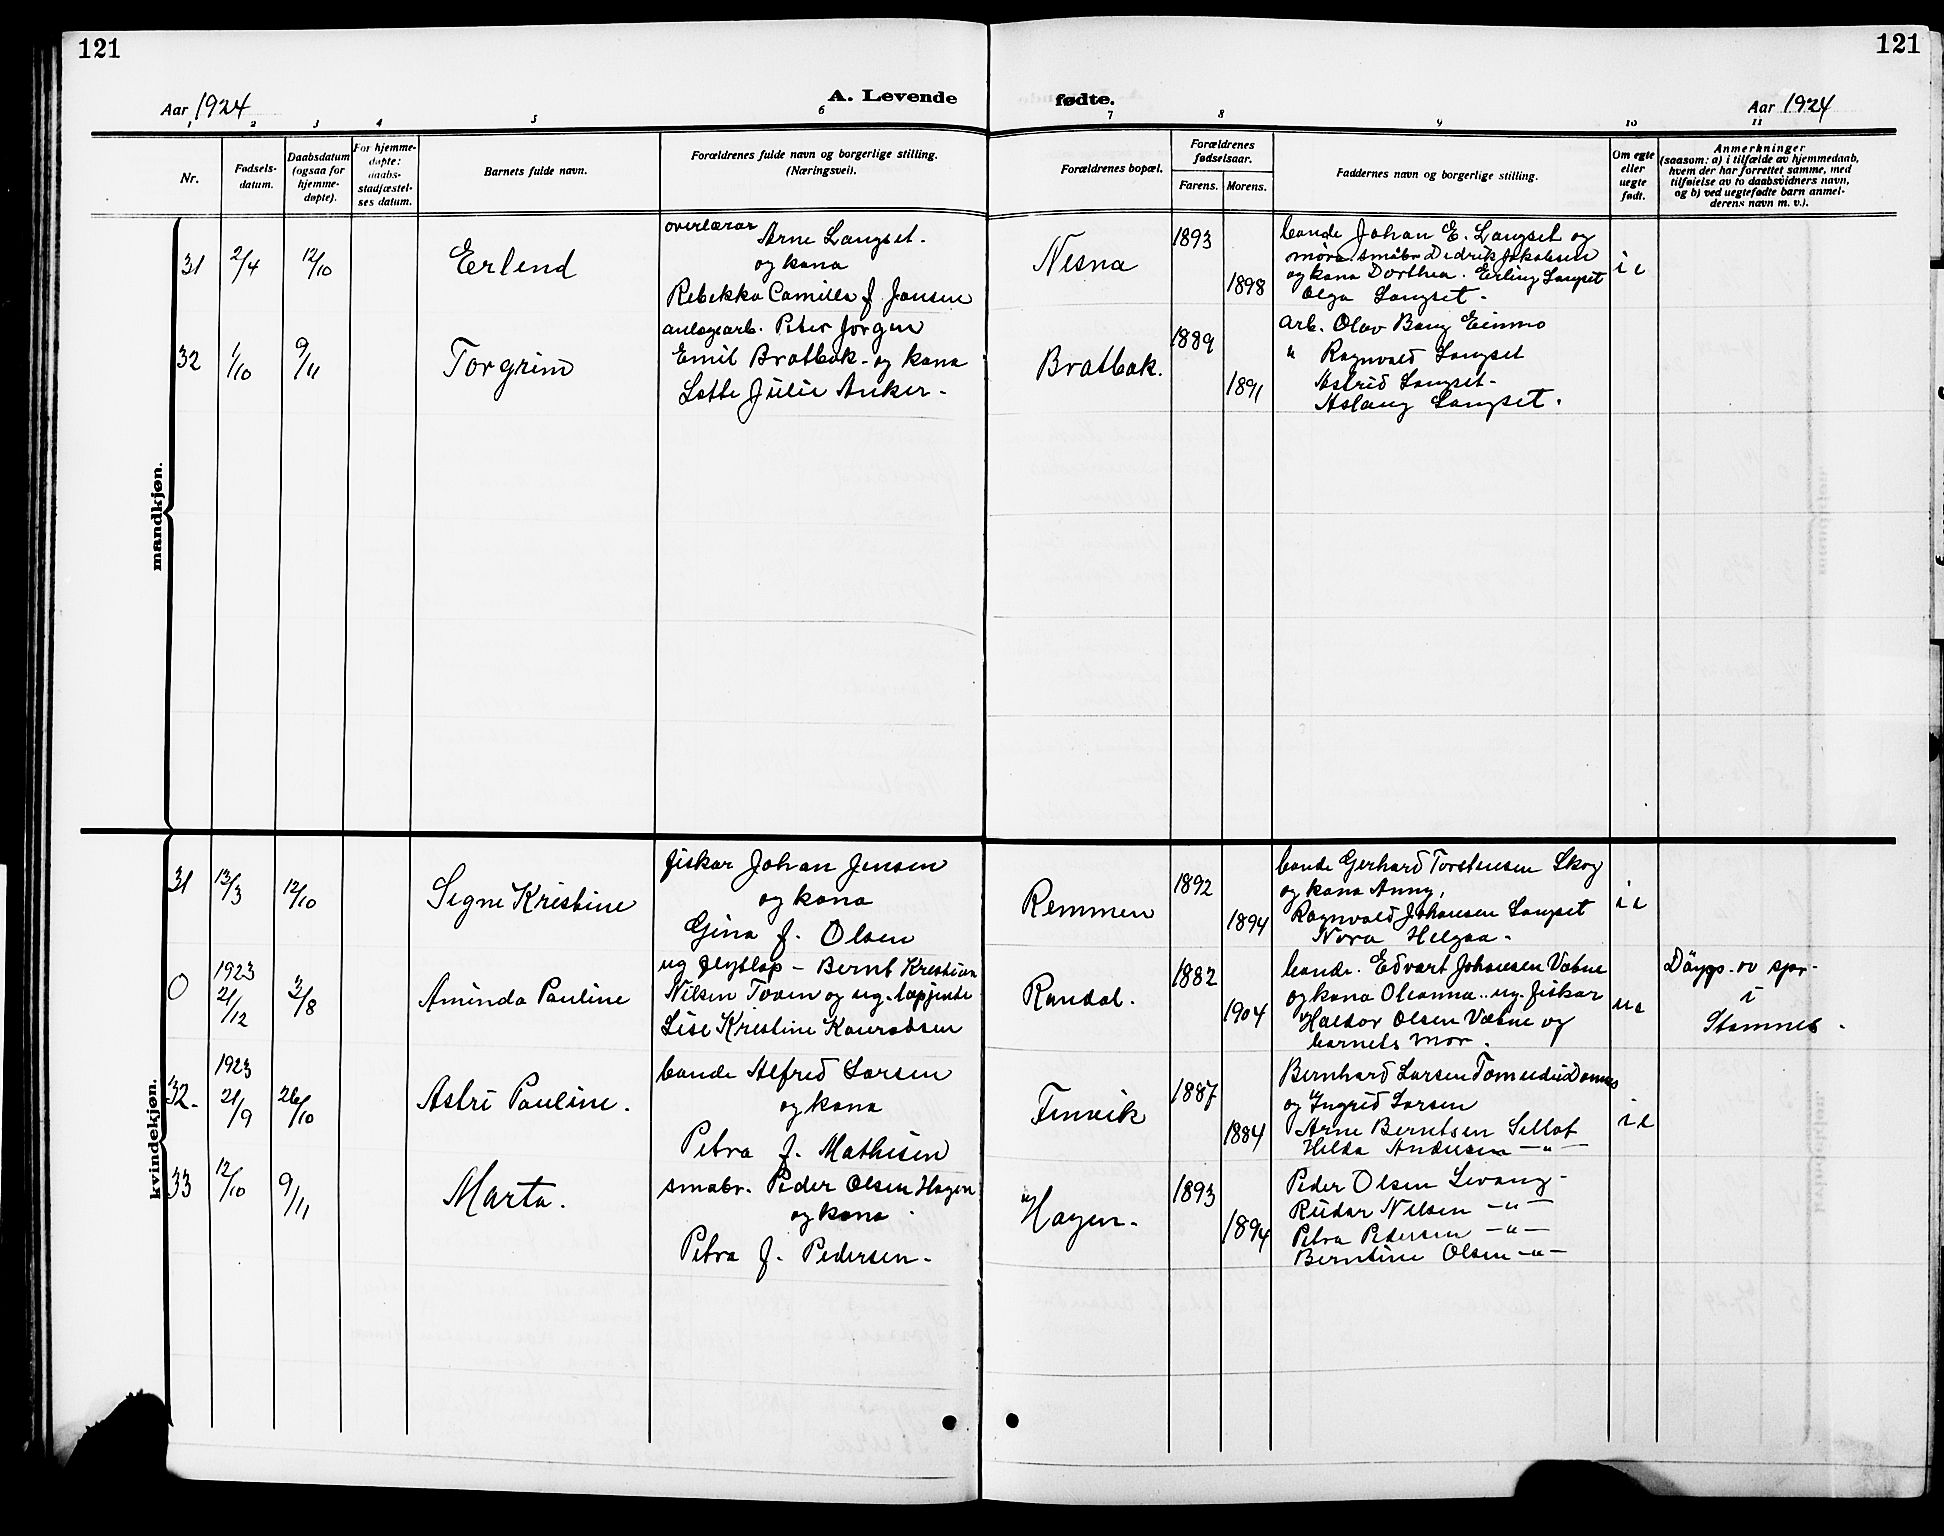 121
121
Aar 1924
A. Levende
fødte.
Aar 1924
1 2 3 4 5 6 7 8 9 10 11
Nr.
Fødsels-
datum.
Daabsdatum
(ogsaa for
hjemme-
døpte).
For hjemme-
døpte:
daabs-
stadfæstel-
ses datum.
Barnets fulde navn.
Forældrenes fulde navn og borgerlige stilling.
(Næringsvei).
Forældrenes bopæl.
Forældrenes
fødselsaar.
Farens. Morens.
Faddernes navn og borgerlige stilling.
Om egte
eller
uegte
født.
Anmerkninger
(saasom: a) i tilfælde av hjemmedaab,
hvem der har forrettet samme, med
tilføielse av to daabsvidners navn,
og b) ved uegtefødte barn anmel-
derens navn m. v.).
mandkjøn.
31 2/4 12/10 Erlend
overlærar
Arne Langset.
og kona
Rebekka Camilla f. Jansen
Nesna
1893
1898
bonde Johan E. Langset og
mora. småbr. Didrik Jakobsen
og kona Dorthea. Erling Langset
Olga Langset.
i e
32 1/10 9/11 Torgrim
anlegsarb. Peter Jørgen
Emil Bratbak og kona
Lotte Julie Anker.
Bratbak.
1889
1891
arb. Olav Bang Einmo
" Ragnvald Langset
Astrid Langset.
Aslaug Langset.
kvindekjøn.
31 13/3 12/10 Signe Kristine
fiskar Johan Jensen
og kona
Gina f. Olsen
Remmen
1892
1894
bonde Gerhard Torstensen Skog
og kona Anny,
Ragnvald Johansen Langset
Nora Helgaa.
i e
0 1923 21/12 3/8 Aminda Pauline
ug flytlap - Bernt Kristian
Nilsen Toven og ug. lapjente
Lise Kristine Konradsen
Randal.
1882
1904
bonde. Edvart Johansen Vabne
og kona Oleanna. ug. fiskar
Haldor Olsen Vabne og
barnets mor.
u e
i
Stamnes.
32. 1923 21/9 26/10 Astri Pauline.
bonde Alfred Larsen
og kona
Petra f. Mathisen
Finvik
1887
1884
Bernhard Larsen
og Ingrid Larsen
Arne Berntsen
Hilda Andersen - " -
i e
33 12/10 9/11 Marta.
småbr. Peder Olsen Hagen
og kona.
Petra f. Pedersen.
Hagen.
1893
1894
Peder Olsen Levang.
Rudar Nilsen - " -
Petra Pedersen - " -
Berntine Olsen - " -